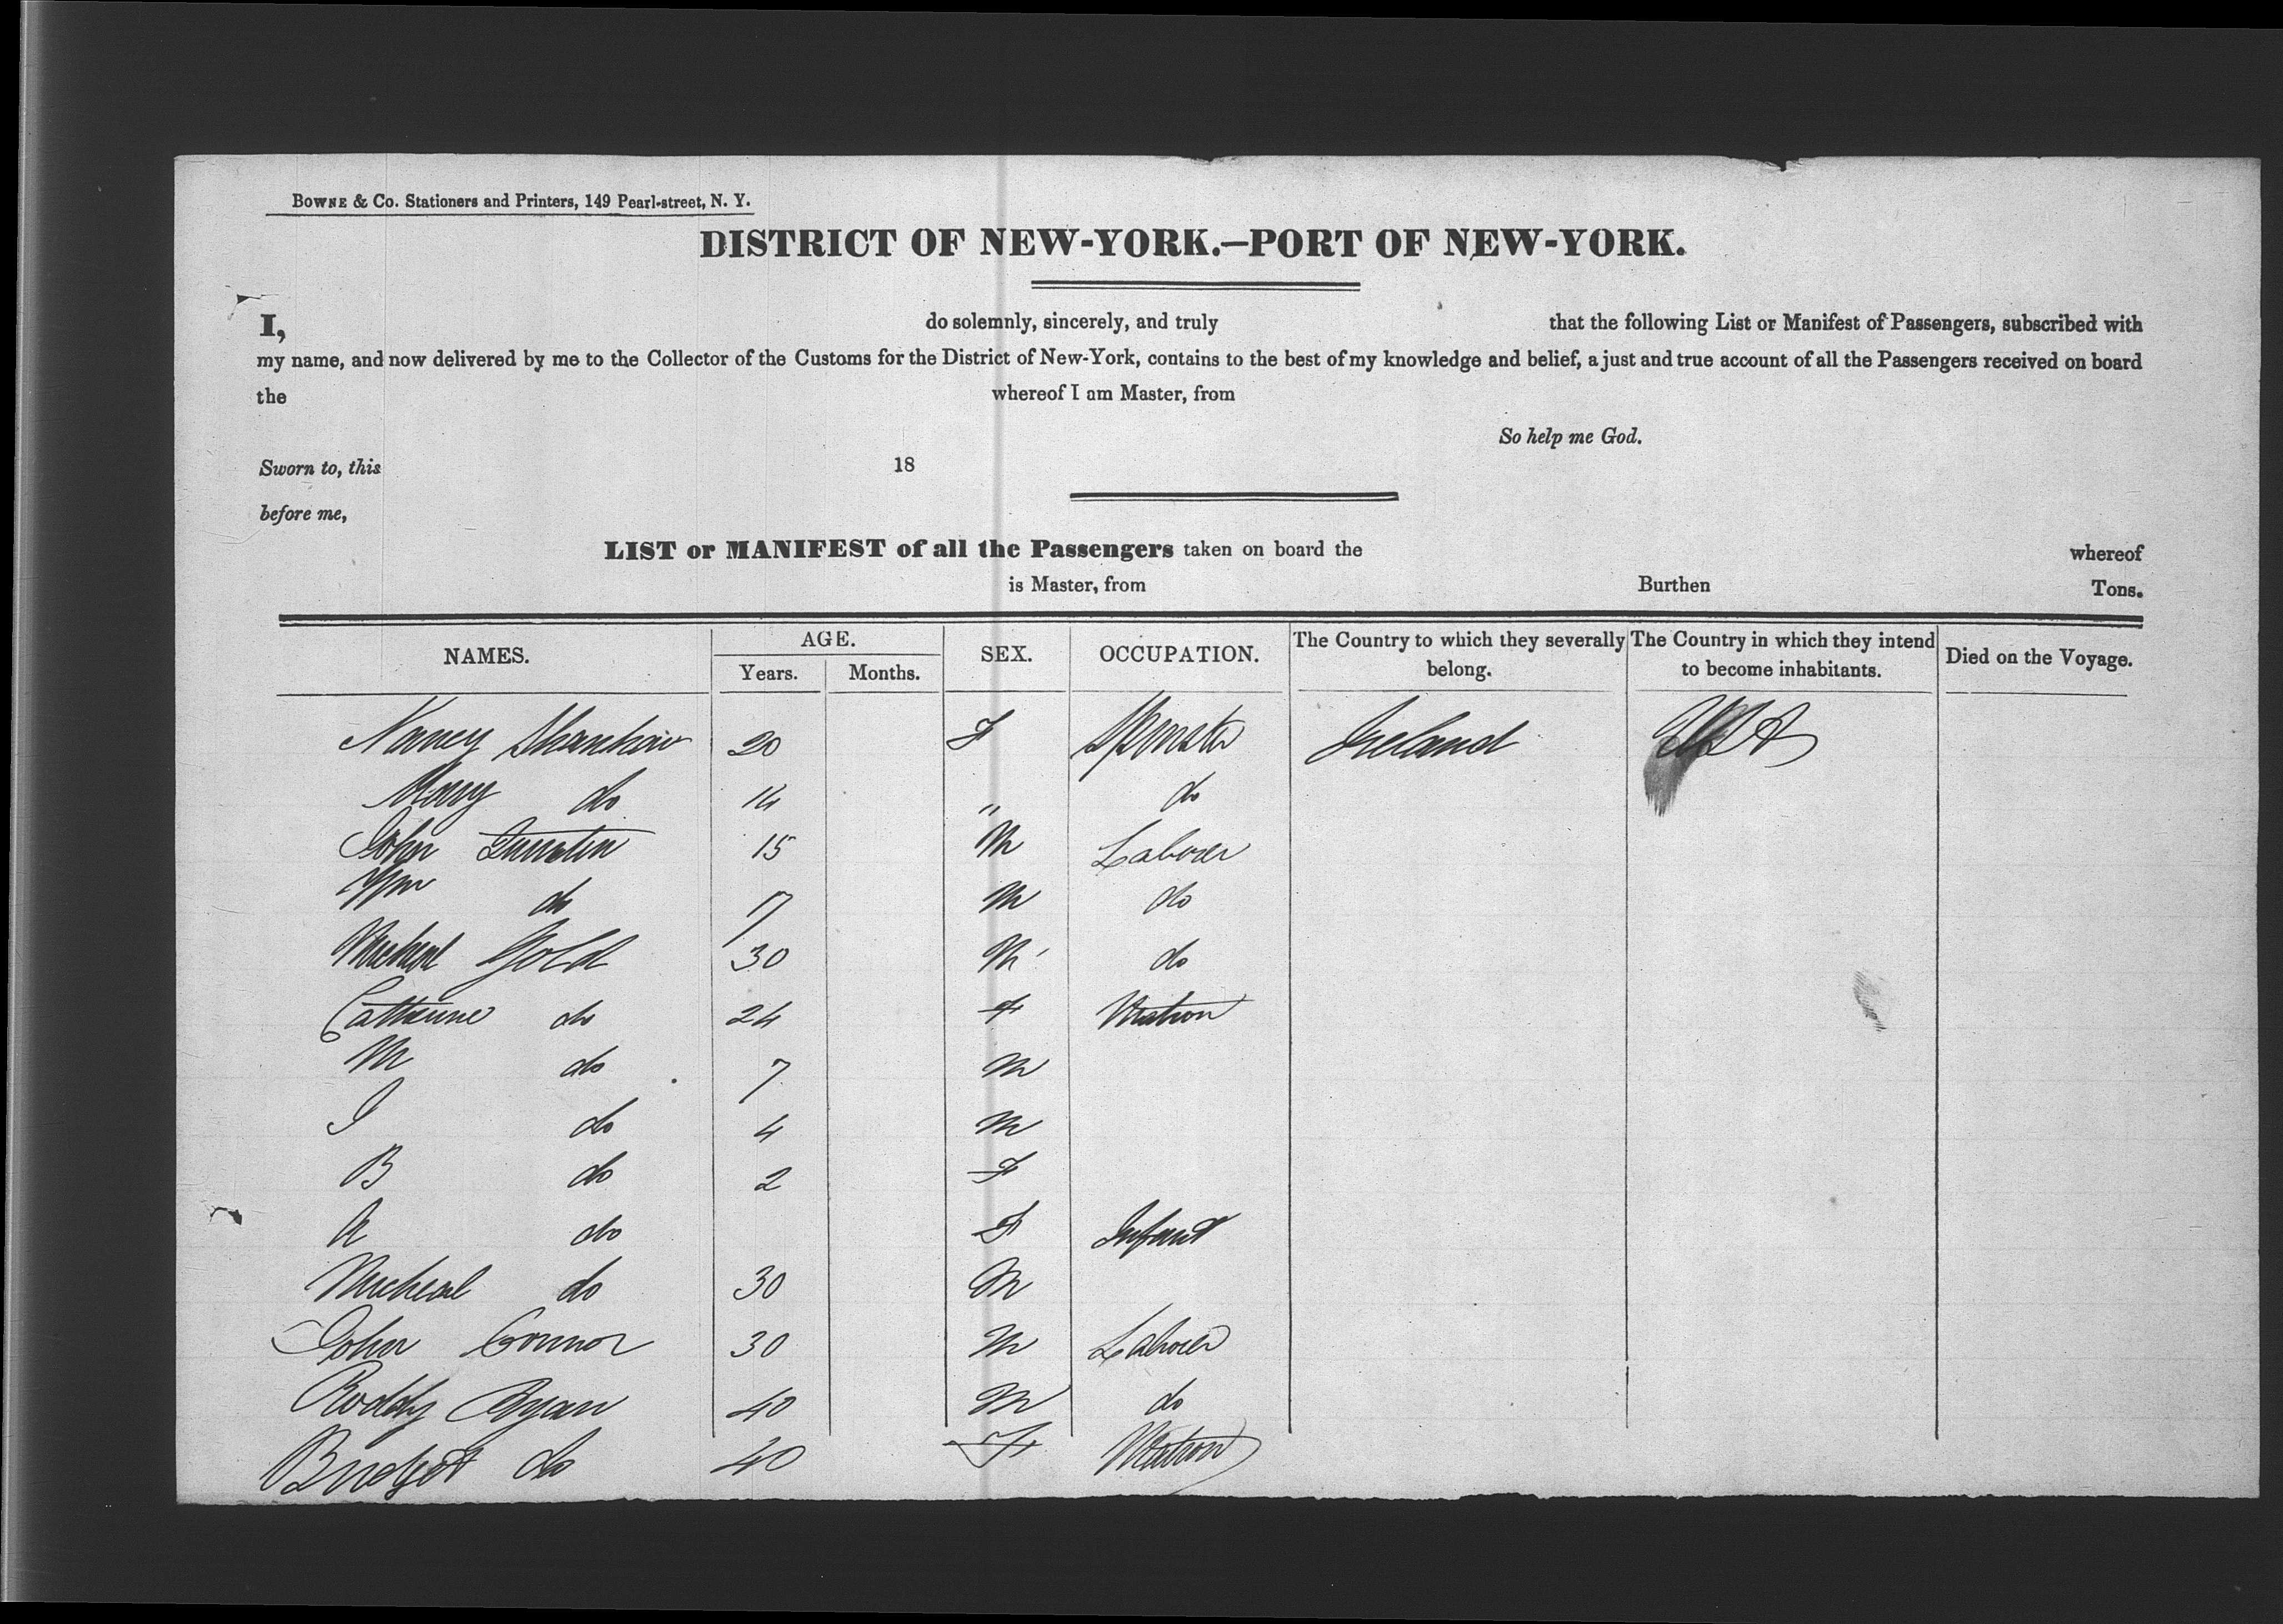 BOWNE & CO. Stationers and Printers, 149 Pearl-street, N. Y.
DISTRICT OF NEW-YORK.—PORT OF NEW-YORK.
I, do solemnly, sincerely, and truly that the following List or Manifest of Passengers, subscribed with
my name, and now delivered by me to the Collector of the Customs for the District of New-York, contains to the best of my knowledge and belief, a just and true account of all the Passengers received on board
the whereof I am Master, from
So help me God.
Sworn to, this 18
before me,
LIST or MANIFEST of all the Passengers taken on board the whereof
is Master, from Burthen Tons.
NAMES. AGE. Years. Months. SEX. OCCUPATION. The Country to which they severally belong. The Country in which they intend to become inhabitants. Died on the Voyage.
Nancy 20 F Spinster Ireland USA
Mary do 14 " do
John 15 M Laborer
Wm do 17 M do
Micheal Gold 30 M do
Catherine do 24 F Matron
M do 7 M
J do 4 M
B do 2 F
A do F Infant
Micheal do 30 M
John Connor 30 M Laborer
Roddy Ryan 40 M do
Bridget do 40 F Matron